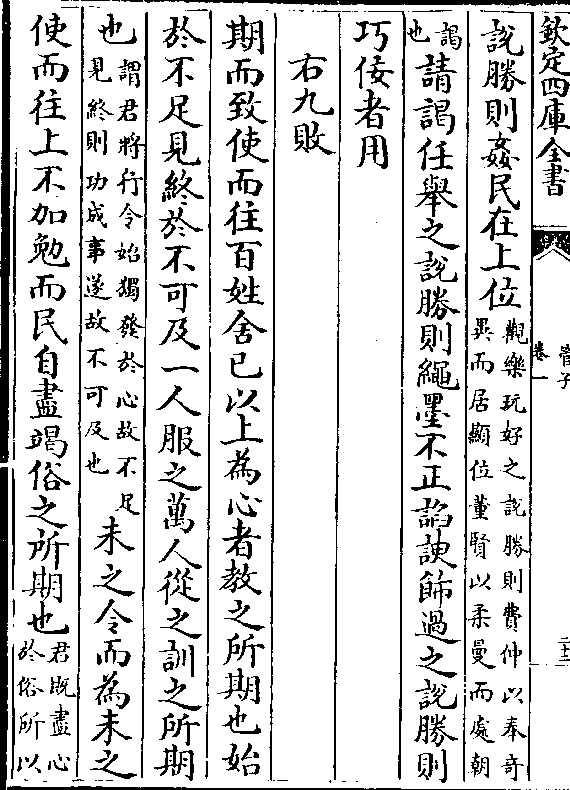 欽定四庫全書
管子
卷一
二十三
說勝則姦民在上位觀樂玩好之說勝則費仲以奉奇
異而居顯位董賢以柔曼而處朝
謁
也請謁任舉之說勝則繩墨不正諂諛飾過之說勝則
巧佞者用
右九敗
期而致使而往百姓舍已以上為心者教之所期也始
於不足見終於不可及一人服之萬人從之訓之所期
也謂君將行令始獨發於心故不足
見終則功成事遂故不可及也未之令而為未之
使而往上不加勉而民自盡竭俗之所期也君既盡心
於俗所以